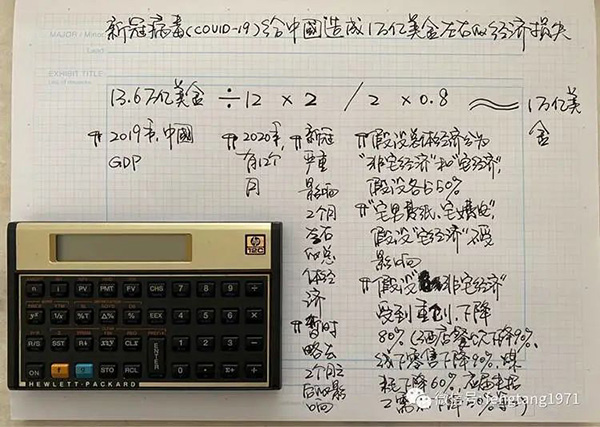 新冠病毒(COVID-19)给中國造成1万亿美金左右的经济损失
MAJOR / Major
EXHIBIT TITLE
13.6万亿美金 ÷ 12 × 2 / 2 × 0.8 ≈ 1万亿美金
2019年中國
GDP
2020年,
有12个
月
新冠
严重
影响
2个月
左右
的总
体经
济
暂时
略去
2个月之
后的影
响
假设总体经济分为
"非宅经济"和"宅经济",
假设各占50%
假设"宅经济"不受
影响
假设"非宅经济"
受到重创,下降
80%(酒店餐饮下降9%,
线下零售下降90%,煤
耗下降60%,
hp
12C
n i PV PMT FV CHS 7 8 9 ÷
yˣ 1/x %T Δ% % EEX 4 5 6 ×
R/S SST R↓ x≷y CLx ENTER 1 2 3 −
ON f g STO RCL 0 · Σ+ +
HEWLETT·PACKARD
微信号: fengtang1971